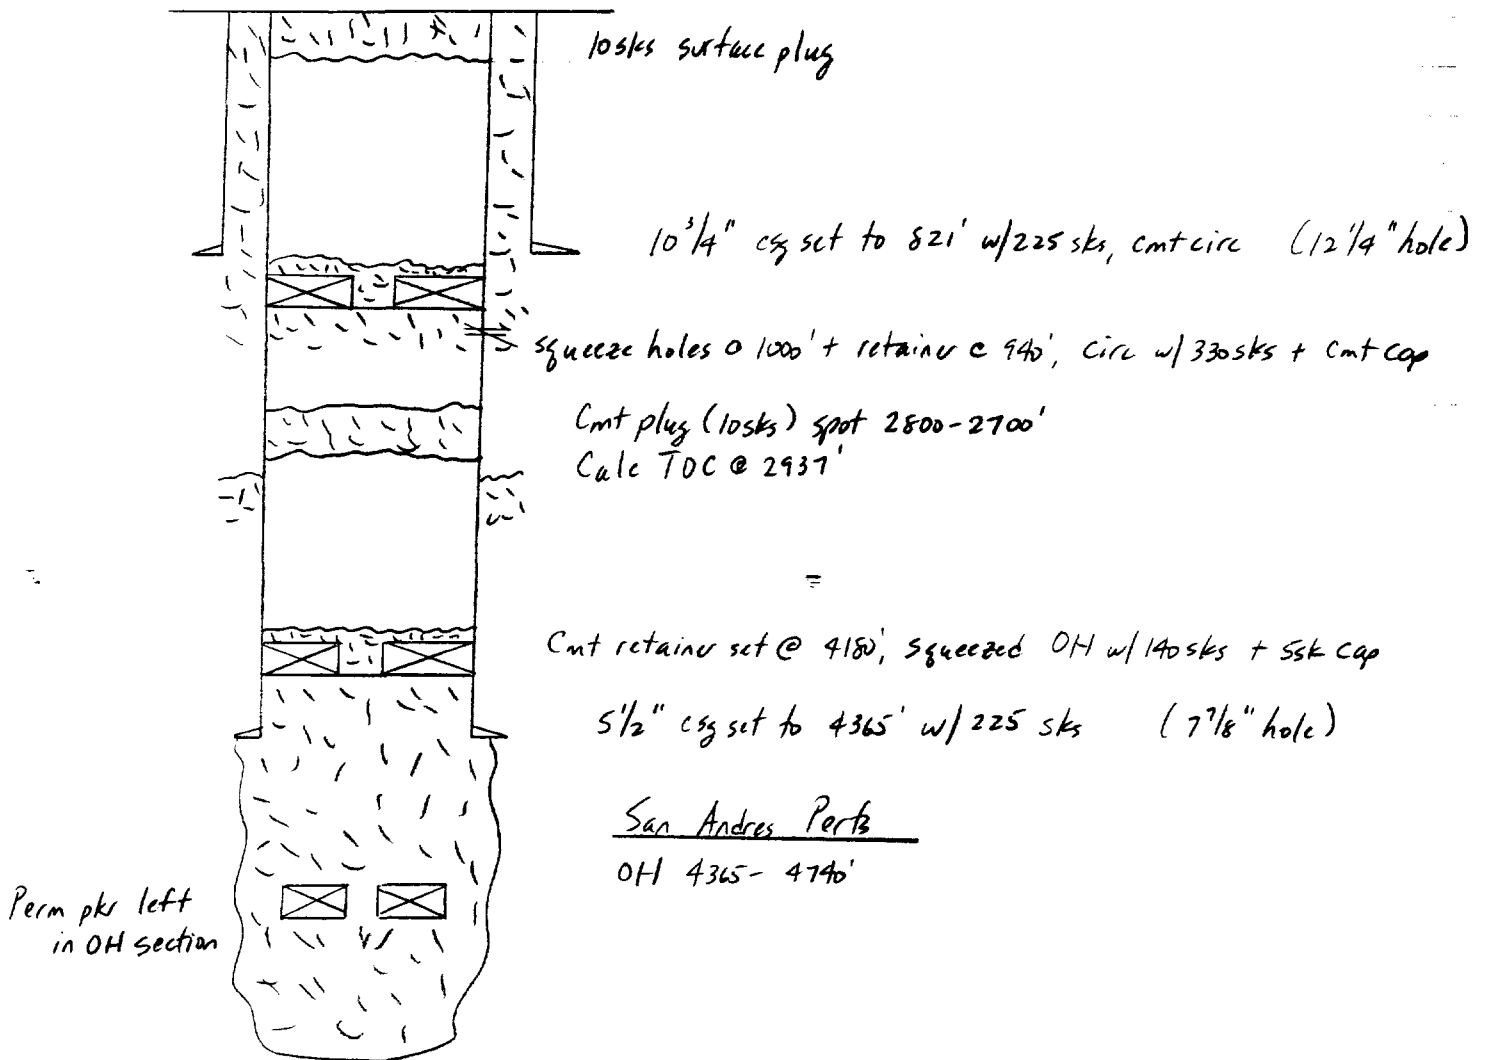 10sks surface plug
10 3/4" csg set to 821' w/225 sks, cmt circ (12 1/4" hole)
squeeze holes @ 1000' + retainer @ 940', circ w/ 330sks + Cmt cap
Cmt plug (10sks) spot 2800-2700'
Calc TOC @ 2937'
Cmt retainer set @ 4180', squeezed OH w/ 140 sks + 5sk cap
5 1/2" csg set to 4365' w/ 225 sks (7 7/8" hole)
San Andres Perfs
OH 4365-4740'
Perm pkr left
in OH section